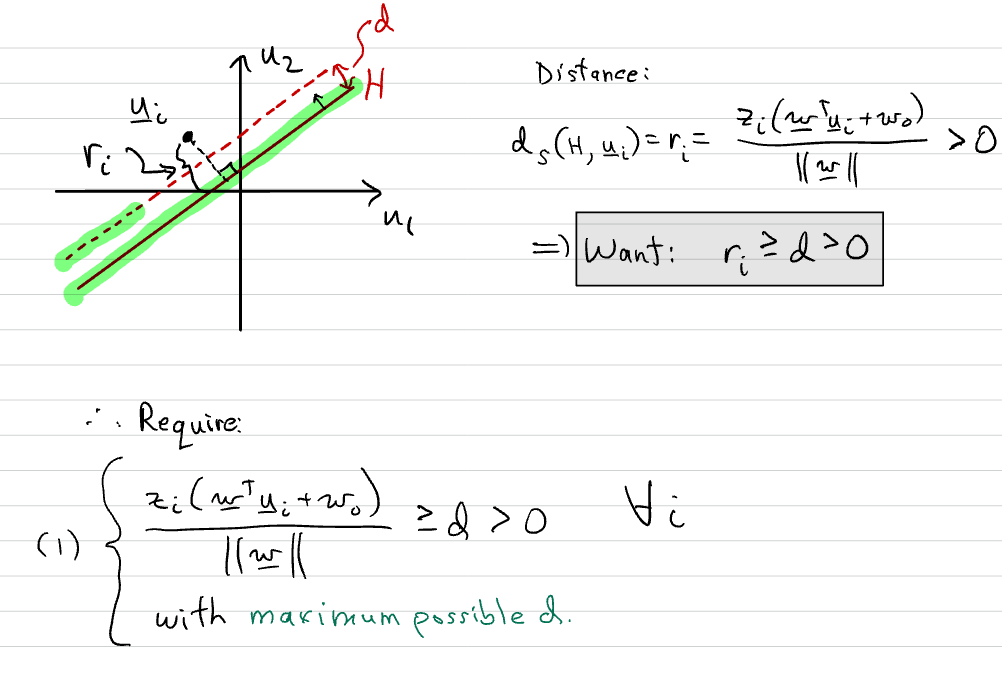 d
u₂
H
u̲ᵢ
rᵢ
u₁
Distance:
dₛ(H, u̲ᵢ) = rᵢ = zᵢ(w̲ᵀu̲ᵢ + w₀) / ‖w̲‖ > 0
⇒ Want: rᵢ ≥ d > 0
∴ Require:
(1) { zᵢ(w̲ᵀu̲ᵢ + w₀) / ‖w̲‖ ≥ d > 0 ∀i
with maximum possible d.